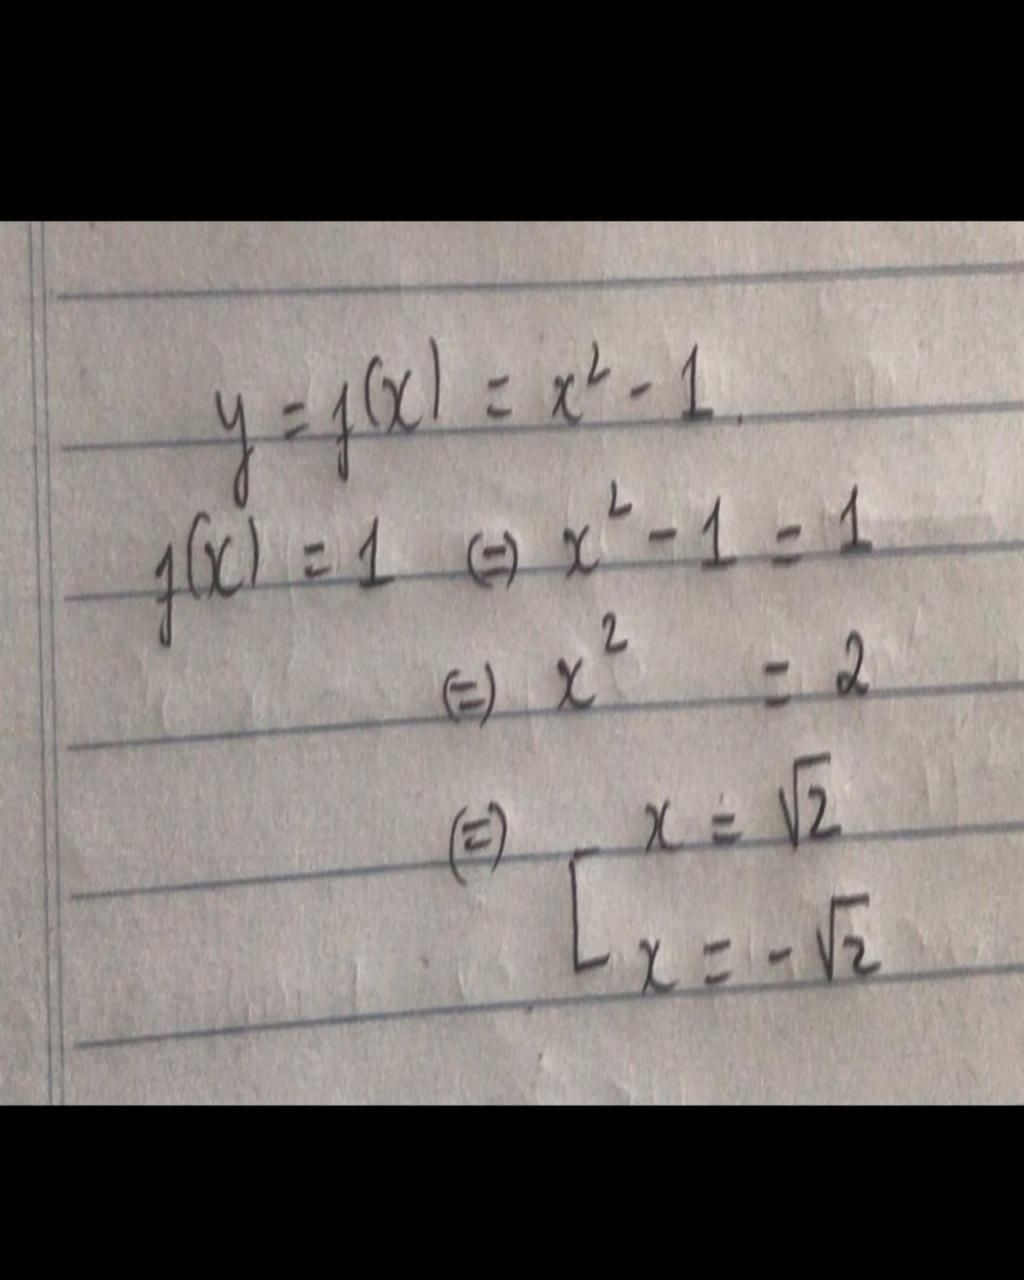 y = f(x) = x² - 1.
f(x) = 1 (=) x² - 1 = 1
(=) x² = 2
(=) [ x = √2
x = -√2